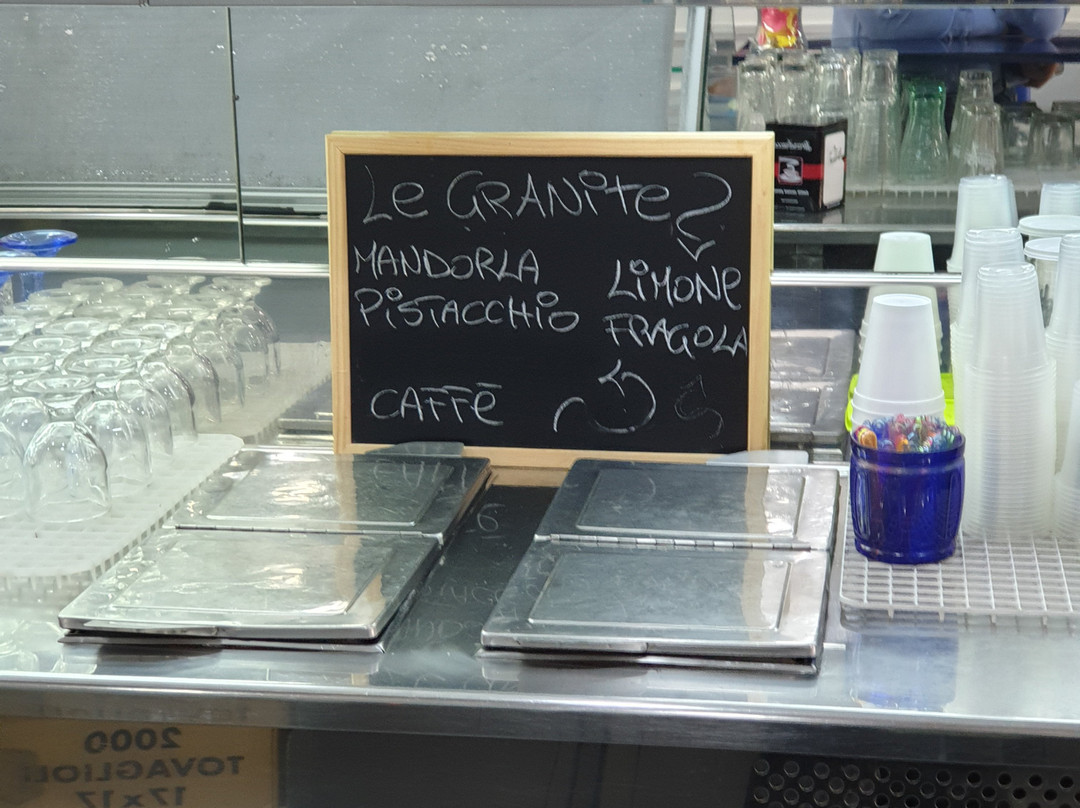 Le GRANiTe
MANDORLA
PiSTACCHiO
LiMONe
FRAGOLA
CAFFÈ
2000
TOVAGLIOLI
17x17